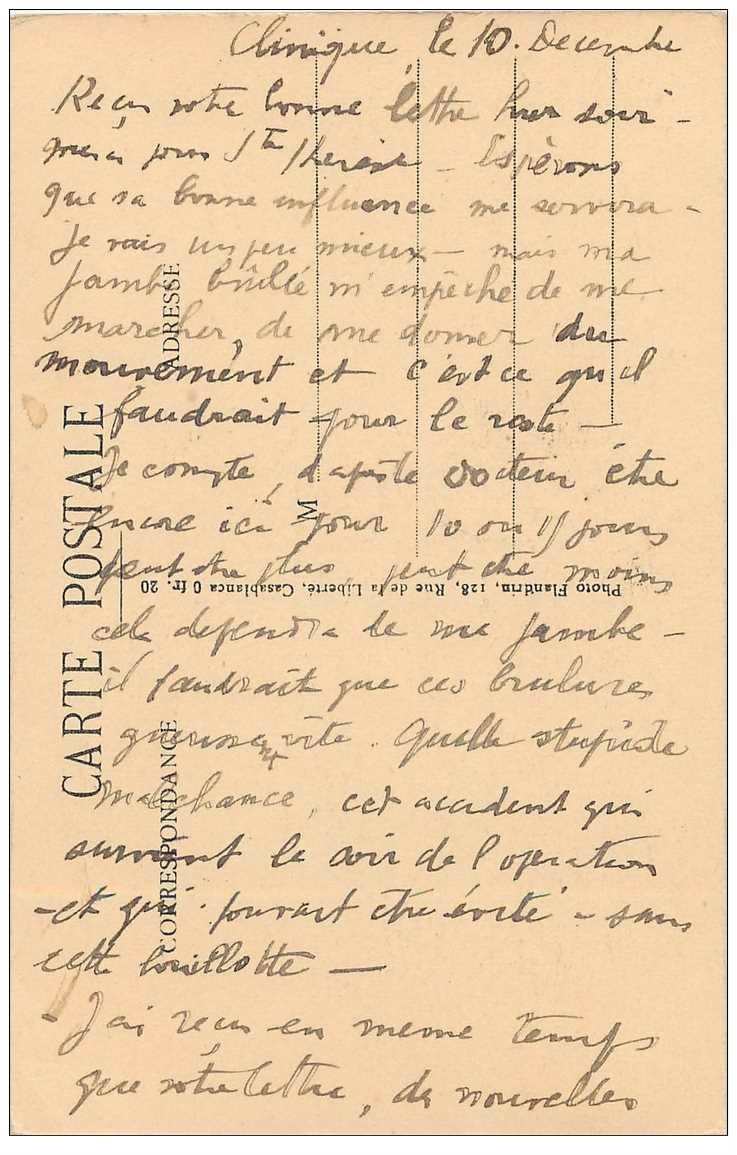 Clinique, le 10. Decembre
Reçu votre bonne lettre hier soir -
merci pour Ste Therèse - Espérons
que sa bonne influence me servira -
je vais un peu mieux - mais ma
jambe brûlée m'empêche de me
marcher, de me donner du
mouvement et c'est ce qu'il
faudrait pour le reste -
Je compte, d'après le docteur être
encore ici pour 10 ou 15 jours
peut être plus peut être moins
cela dependra de ma jambe -
il faudrait que ces brulures
guerissent vite. Quelle stupide
malechance, cet accident qui
survient le soir de l'operation
- et qui pouvait etre évité - sans
cette bouillotte -
- J'ai reçu en meme temps
que votre lettre, des nouvelles
CARTE POSTALE
CORRESPONDANCE
ADRESSE
M
Photo Flandrin, 128, Rue de la Liberté, Casablanca 0 fr. 20